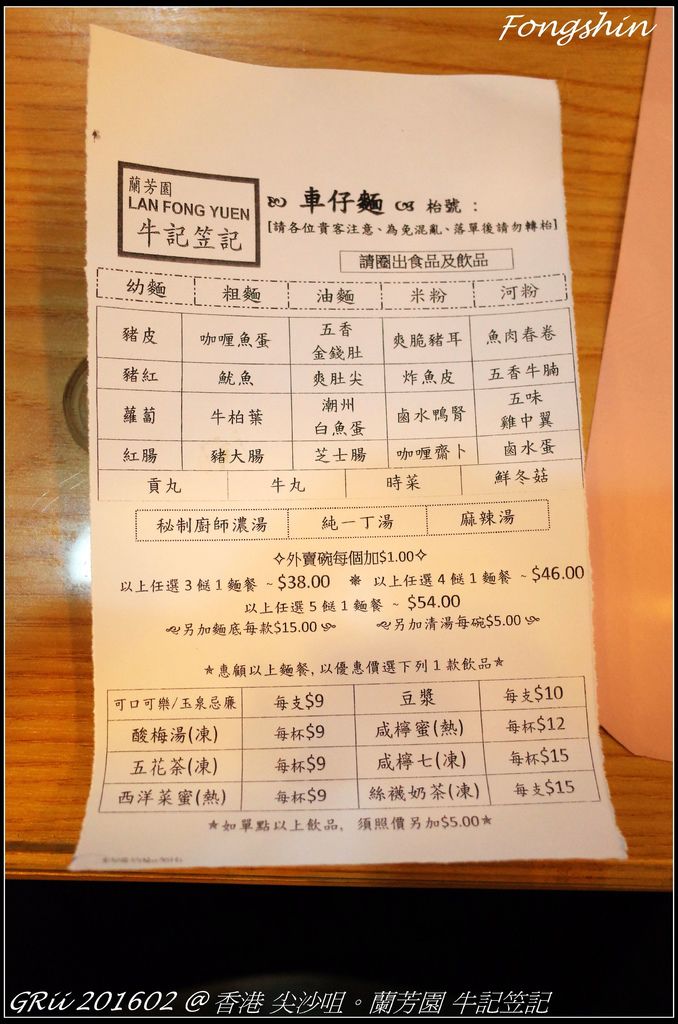 Fongshin
蘭芳園
LAN FONG YUEN
牛記笠記
車仔麵 枱號：
[請各位貴客注意、為免混亂、落單後請勿轉枱]
請圈出食品及飲品
幼麵 粗麵 油麵 米粉 河粉
豬皮 咖喱魚蛋 五香金錢肚 爽脆豬耳 魚肉春卷
豬紅 魷魚 爽肚尖 炸魚皮 五香牛腩
蘿蔔 牛柏葉 潮州白魚蛋 鹵水鴨腎 五味雞中翼
紅腸 豬大腸 芝士腸 咖喱齋卜 鹵水蛋
貢丸 牛丸 時菜 鮮冬菇
秘制廚師濃湯 純一丁湯 麻辣湯
✧外賣碗每個加$1.00✧
以上任選 3 餸 1 麵餐 ~ $38.00 ❋ 以上任選 4 餸 1 麵餐 ~ $46.00
以上任選 5 餸 1 麵餐 ~ $54.00
另加麵底每款$15.00 另加清湯每碗$5.00
★惠顧以上麵餐, 以優惠價選下列 1 款飲品★
可口可樂/玉泉忌廉 每支$9 豆漿 每支$10
酸梅湯(凍) 每杯$9 咸檸蜜(熱) 每杯$12
五花茶(凍) 每杯$9 咸檸七(凍) 每杯$15
西洋菜蜜(熱) 每杯$9 絲襪奶茶(凍) 每支$15
★如單點以上飲品, 須照價另加$5.00★
GRii 201602 @ 香港 尖沙咀。蘭芳園 牛記笠記